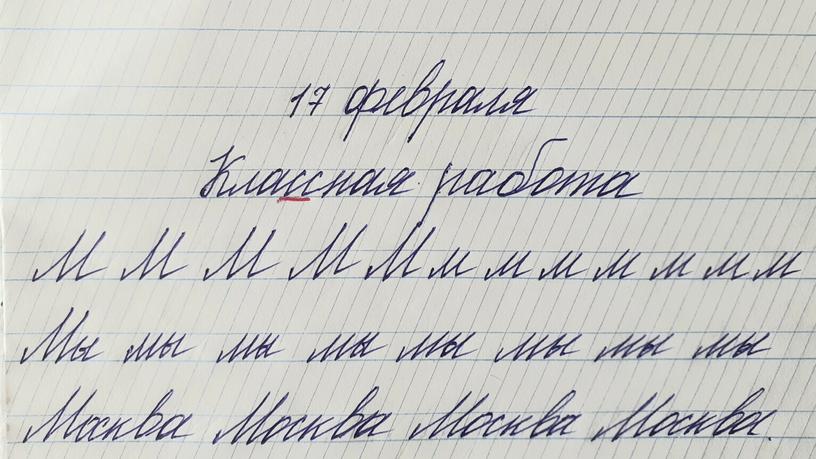 17 февраля
Классная работа
М М М М М м м м м м м м
Мы мы мы мы мы мы мы мы
Москва Москва Москва Москва.